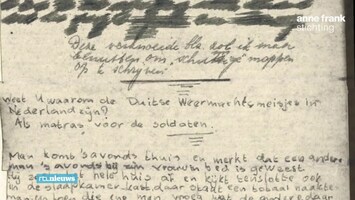 anne frank
stichting
Deze verknoeide bla zal ik maar
benutten om "schuine" moppen
op te schrijven
Weet U waarom de Duitse Weermachtsmeisjes in
Nederland zijn?
Als matras voor de soldaten.
Man komt 's avonds thuis en merkt dat een andere
man 's avonds bij zijn vrouw in bed is geweest
Hij zoekt het hele huis af en kijkt tenslotte ook
in de slaapkamer kast, daar staat een totaal naakte
man
rtl nieuws